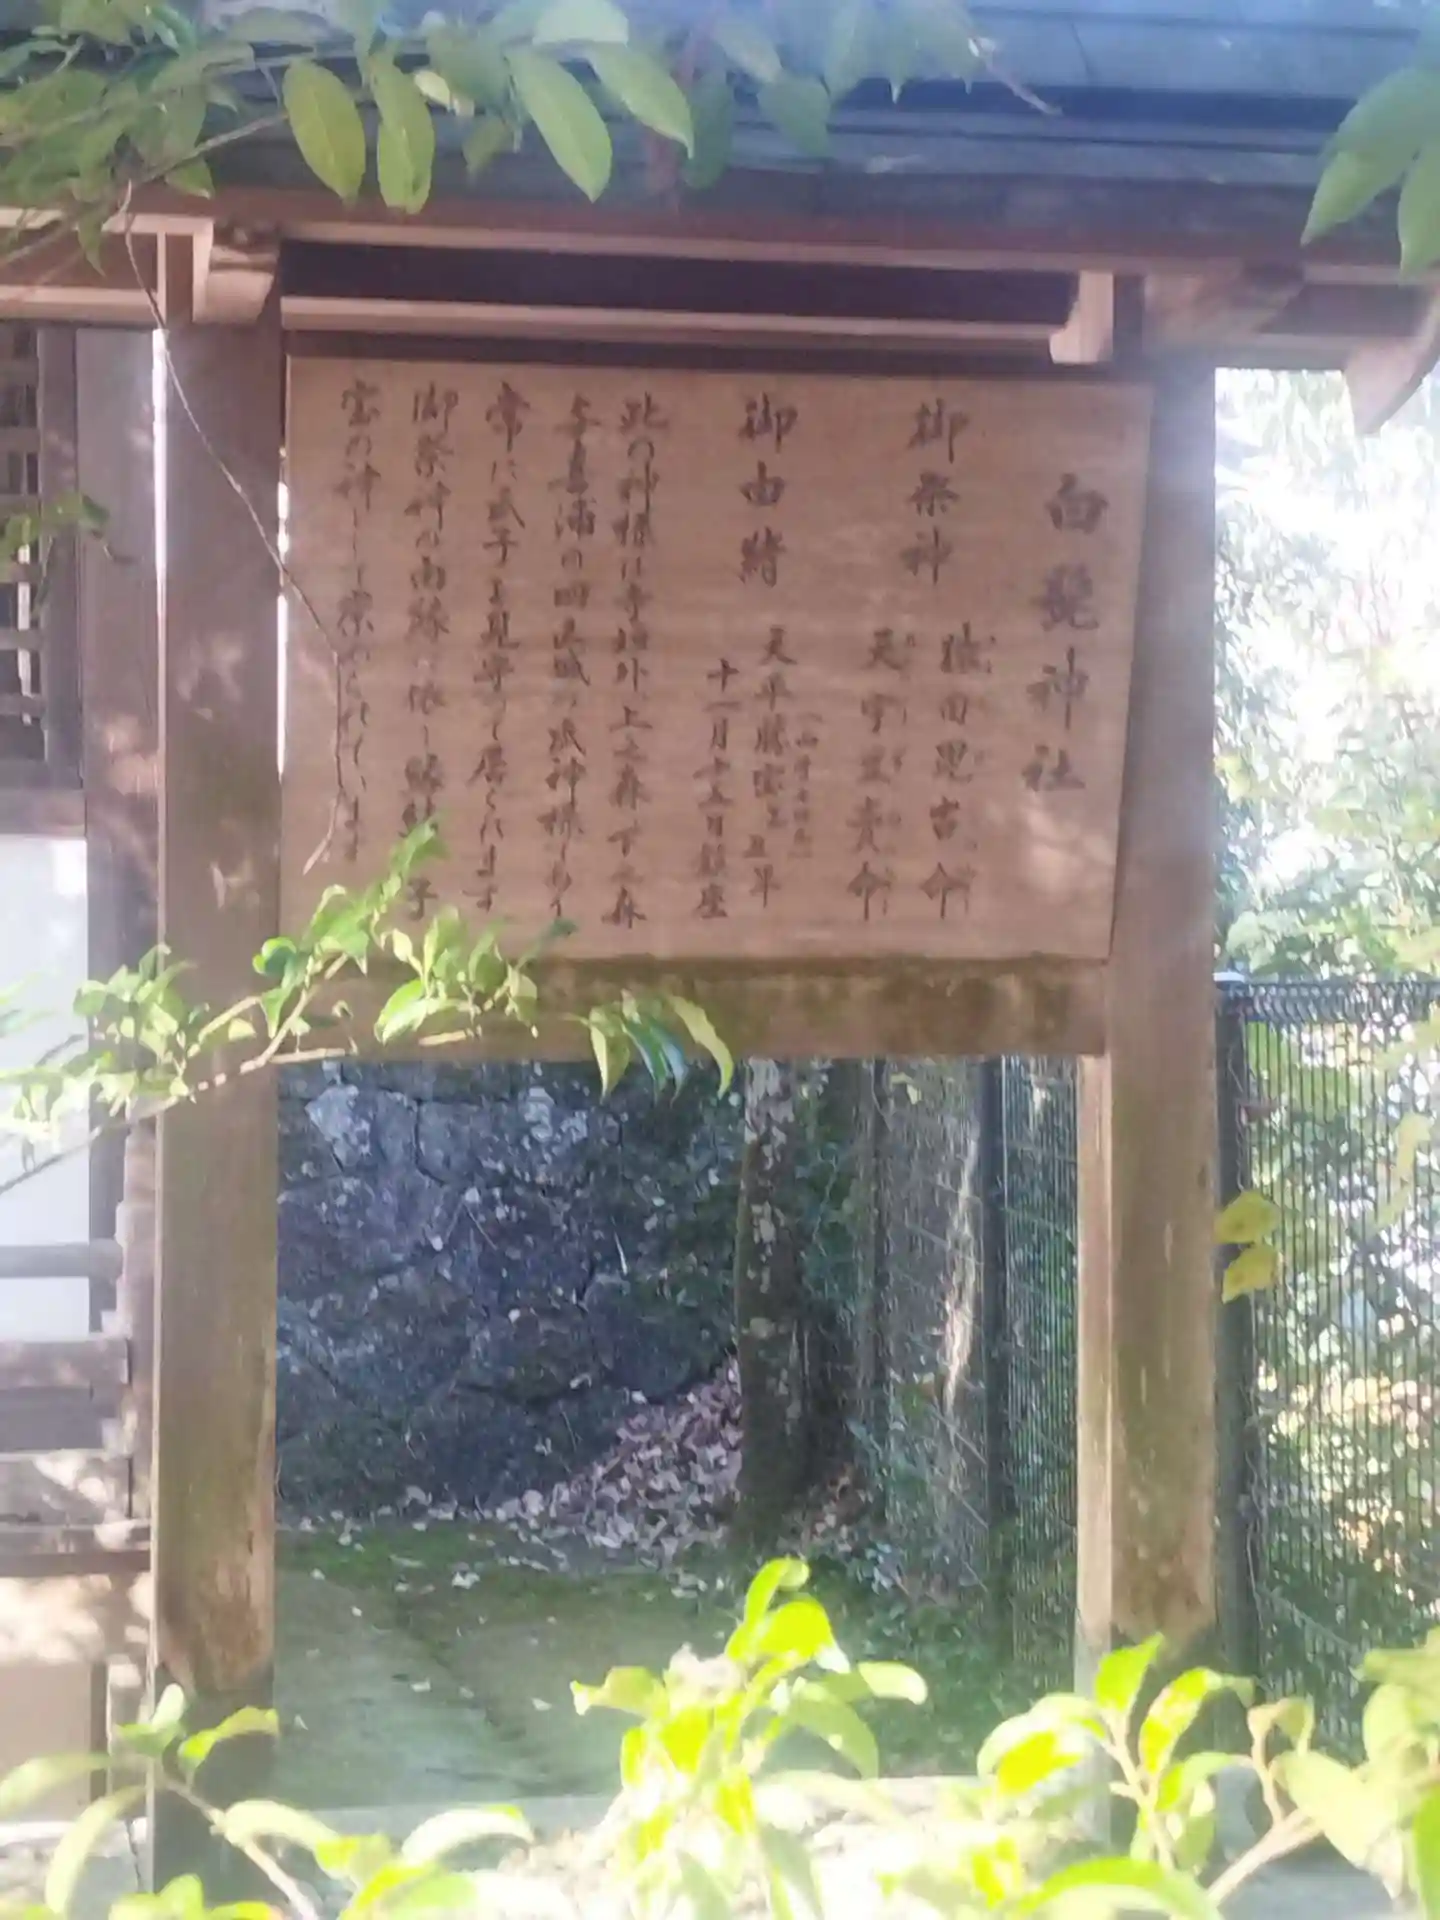 白髭神社
御祭神 猿田毘古命
天宇受売命
御由緒 天平勝宝 五年
十一月十五日鎮座
此の神様は寺垣外、上之森、下之森
与喜浦の四区域の氏神様であり
常に氏子を見守って居られます
御祭神の由縁に依り縁結 子
宝の神として崇められています